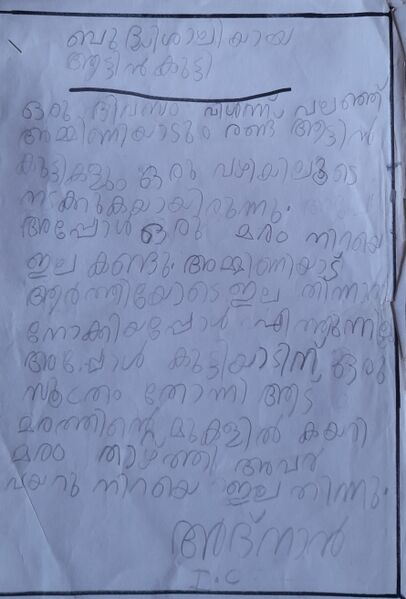 ബുദ്ധിശാലിയായ
ആട്ടിൻകുട്ടി
ഒരു ദിവസം വിശന്ന് വലഞ്ഞ്
അമ്മിണിയാടും രണ്ട് ആട്ടിൻ
കുട്ടികളും ഒരു വഴിയിലൂടെ
നടക്കുകയായിരുന്നു.
അപ്പോൾ ഒരു മരം നിറയെ
ഇല കണ്ടു. അമ്മിണിയാട്
ആർത്തിയോടെ ഇല തിന്നാൻ
നോക്കിയപ്പോൾ
അപ്പോൾ കുട്ടിയാടിന് ഒരു
സൂത്രം തോന്നി ആട്
മരത്തിന്റെ മുകളിൽ കയറി
മരം താഴ്ത്തി അവർ
വയറു നിറയെ ഇല തിന്നു.
അദ്നാൻ
I.C